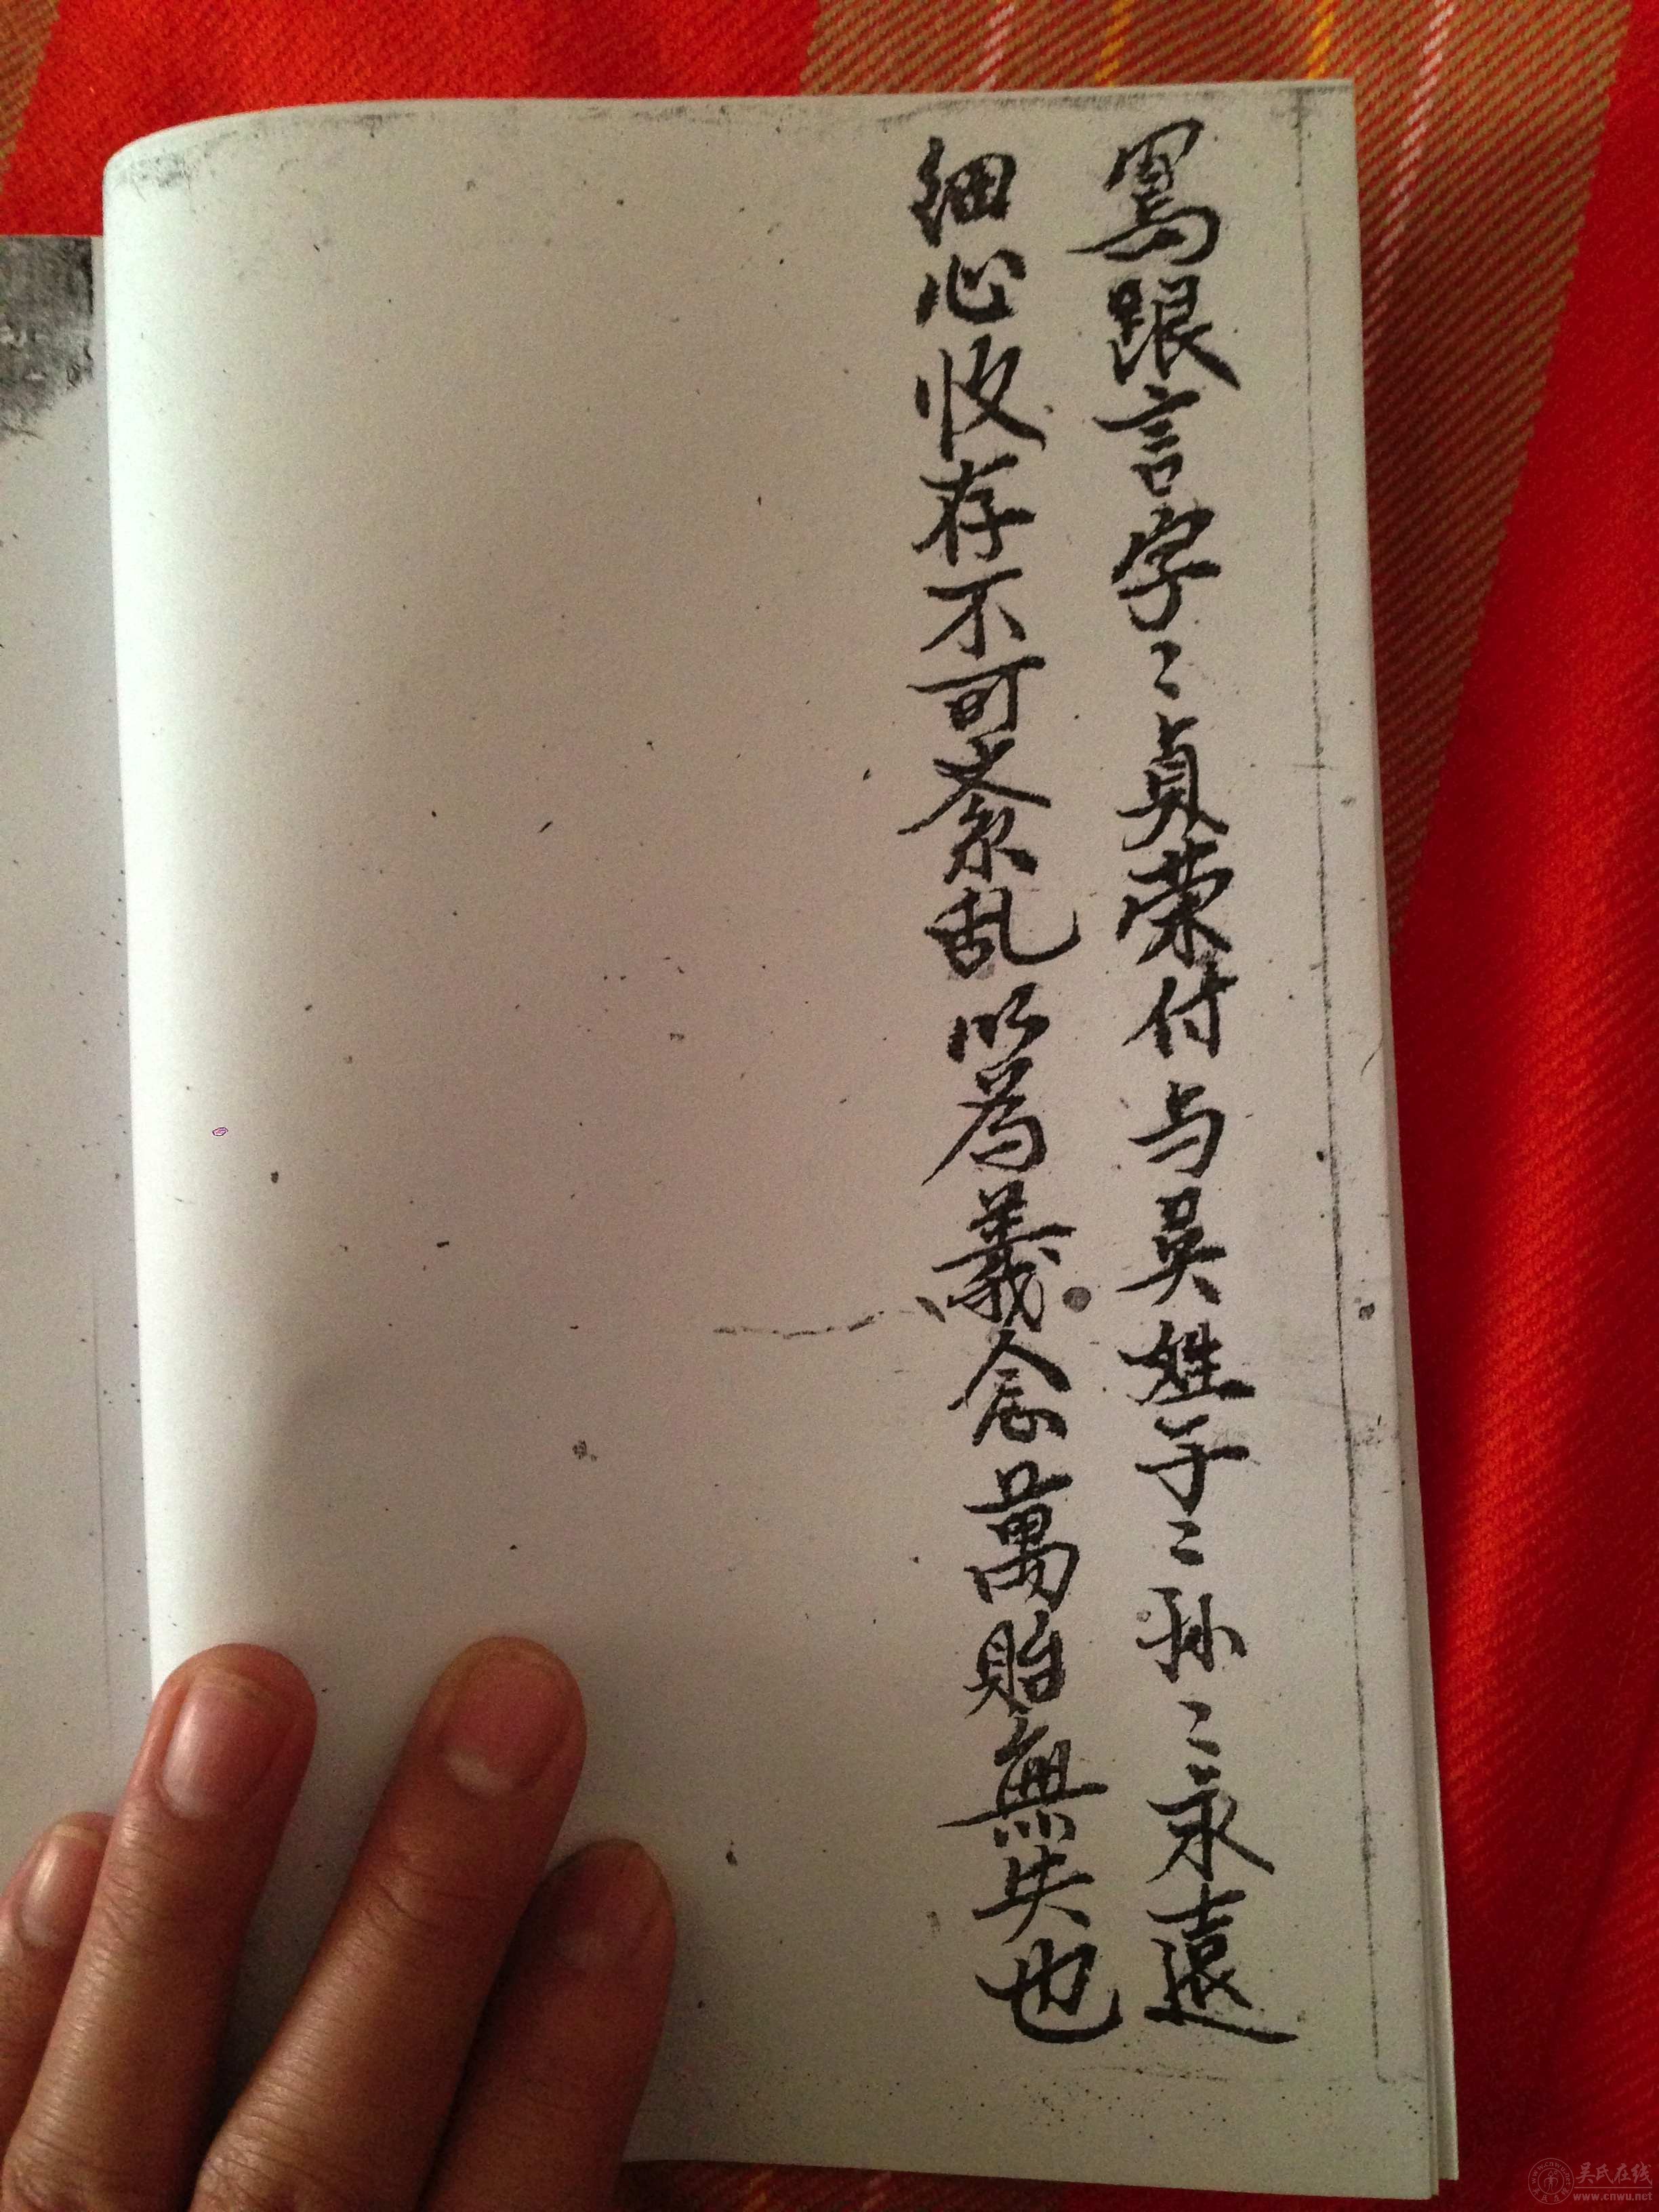 写跟言字〻貞荣付与吴姓子〻孙〻永遠
细心收存不可紊乱以為義念萬貽無失也
吴氏在线
www.cnwu.net